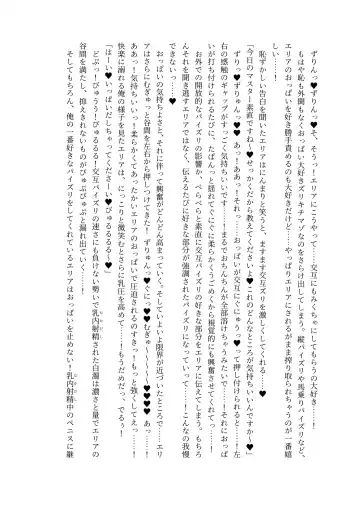 ずりんっ♥ずりんっ♥そ、そうっ！エリアにこうやって……交互にもみくちゃにしてもらうの大好き！
もはや恥も外聞もなくおっぱい大好きズリキチマゾなのをさらけ出してしまう。縦パイズリや馬乗りパイズリなど、
エリアのおっぱいを好き勝手責めるのも大好きだけど……やっぱりエリアにされるがまま搾り取られちゃうのが一番嬉
恥ずかしい告白を聞いたエリアはにんまりと笑うと、ますます交互ズリを激しくしてくれる……♥
「今日のマスター素直ですね～♥せっかくだから教えてくださいよ♥これのどんなところが気持ちいいんですか～♥」
ずりっ♥ずりゅんっ♥ずっ♥ああぁっ！それっ……！おっぱいが交互にぐにゅうっ♥って押し付けられると……！左
右の感触のギャップがすごく気持ちいいです……！まるでおちんちんが全部溶けちゃうみたいで……！それにおっぱ
いが打ち付けられるたびに、たぱんったぷんって揺れてぐにぐに柔らかくてなのから視覚的にも興奮させてくれて……！
お外での開放的なパイズリの影響か、べらべらと素直に交互パイズリの好きな部分をエリアに伝えてしまう。もちろ
んそれを聞き逃すエリアではなく、伝えるたびに好きな部分が強調されたパイズリになっていって……！こんなの我慢
できないっ……♥
おっぱいの気持ちよさと、それに伴って興奮がどんどん高まってきて、そしていよいよ限界が近づいたところで……エリ
アはさらにむぎゅっと谷間を左右から押しつけてきた！ずりゅんっ♥ぐにっ♥♥むぎゅっ！！♥♥♥♥あっ！
ああっ！気持ちいいっ！柔らかくてあったかいエリアのおっぱいで圧迫されるのすきっ！もっと強くしてえっ……！
快楽に溺れる俺の様子を見たエリアは、にっこりと微笑むとさらに乳圧を高めて……！もうだめだっ、でるぅ！
「はーい♥いっぱいだしちゃってくださーい♥びゅるるるる～♥」
どぷっ！びゅうう！びゅるるる！交互パイズリの速さにも負けない勢いで乳内射精された白濁は濃さと量でエリアの
谷間を満たし、抑えきれないものがびゅぷびゅぷと漏れ出ていく……！
そしてもちろん、俺の一番好きなパイズリをしてくれているエリアはおっぱいを止めない…！乳内射精中のペニスに継